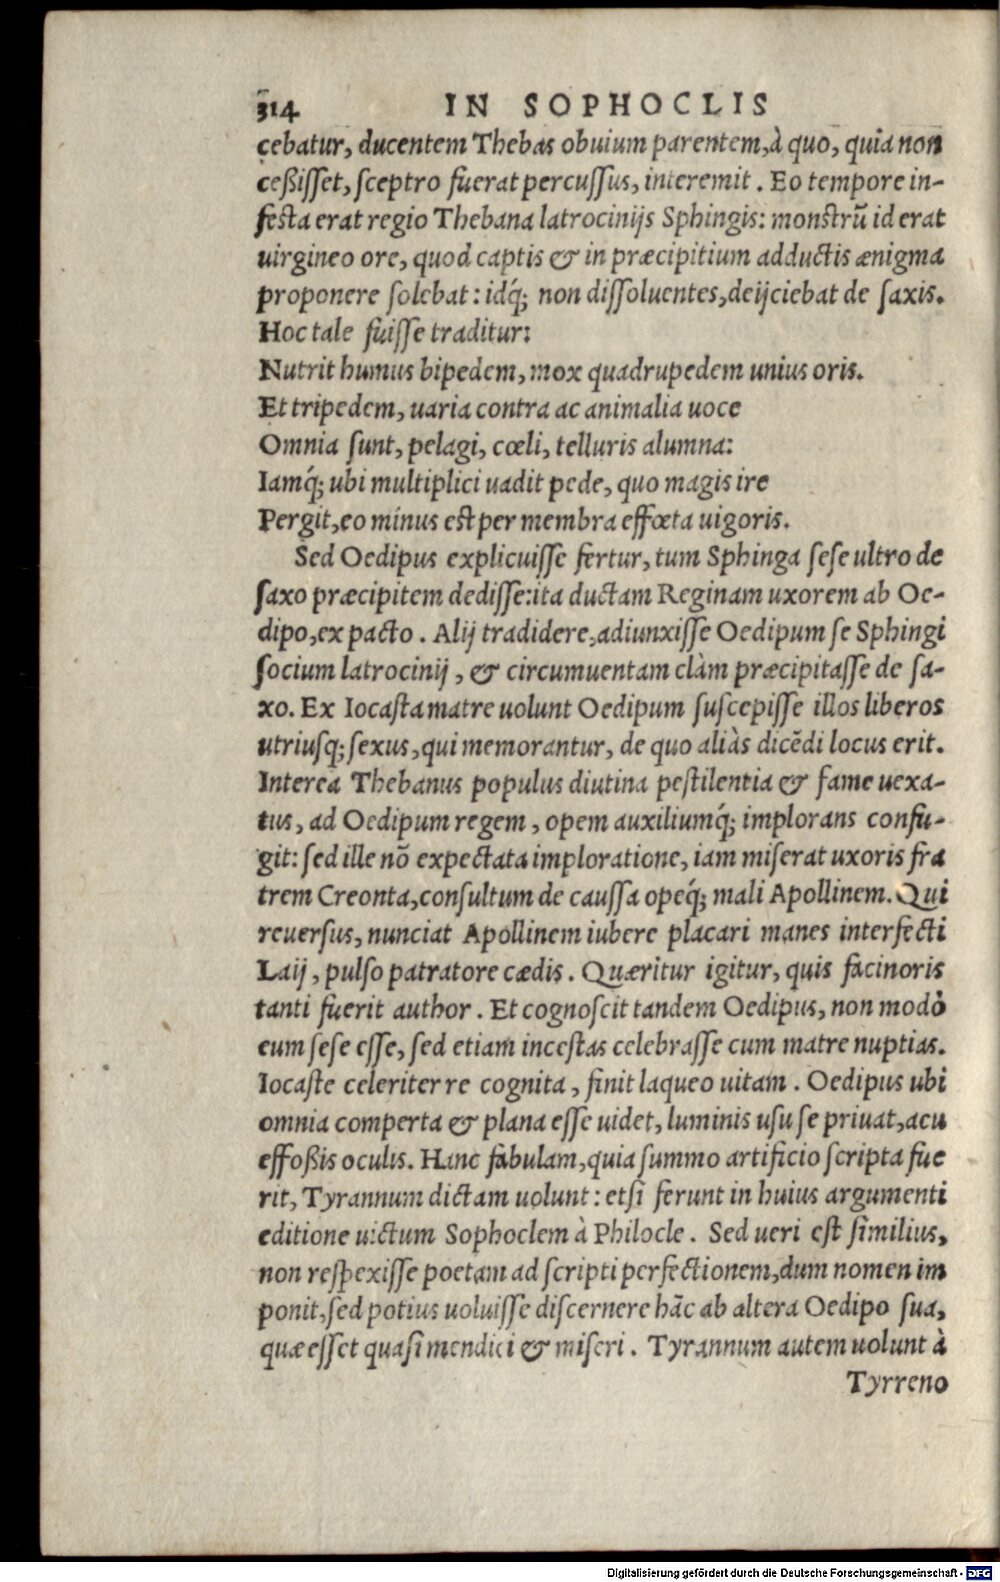 314 IN SOPHOCLIS
cebatur, ducentem Thebas obuium parentem, à quo, quia non
ceßisset, sceptro fuerat percussus, interemit. Eo tempore in-
festa erat regio Thebana latrocinijs Sphingis: monstrũ id erat
uirgineo ore, quod captis & in præcipitium adductis ænigma
proponere solebat: idq́; non dissoluentes, deijciebat de saxis.
Hoc tale fuisse traditur:
Nutrit humus bipedem, mox quadrupedem unius oris.
Et tripedem, uaria contra ac animalia uoce
Omnia sunt, pelagi, cœli, telluris alumna:
Iamq́; ubi multiplici uadit pede, quo magis ire
Pergit, eo minus est per membra effœta uigoris.
Sed Oedipus explicuisse fertur, tum Sphinga sese ultro de
saxo præcipitem dedisse: ita ductam Reginam uxorem ab Oe-
dipo, ex pacto. Alij tradidere, adiunxisse Oedipum se Sphingi
socium latrocinij, & circumuentam clàm præcipitasse de sa-
xo. Ex Iocasta matre uolunt Oedipum suscepisse illos liberos
utriusq; sexus, qui memorantur, de quo aliàs dicẽdi locus erit.
Interea Thebanus populus diutina pestilentia & fame uexa-
tus, ad Oedipum regem, opem auxiliumq́; implorans confu-
git: sed ille nõ expectata imploratione, iam miserat uxoris fra
trem Creonta, consultum de caussa opeq́; mali Apollinem. Qui
reuersus, nunciat Apollinem iubere placari manes interfecti
Laij, pulso patratore cædis. Quæritur igitur, quis facinoris
tanti fuerit author. Et cognoscit tandem Oedipus, non modò
eum sese esse, sed etiam incestas celebrasse cum matre nuptias.
Iocaste celeriter re cognita, finit laqueo uitam. Oedipus ubi
omnia comperta & plana esse uidet, luminis usu se priuat, acu
effoßis oculis. Hanc fabulam, quia summo artificio scripta fue
rit, Tyrannum dictam uolunt: etsi ferunt in huius argumenti
editione uictum Sophoclem à Philocle. Sed ueri est similius,
non respexisse poetam ad scripti perfectionem, dum nomen im
ponit, sed potius uoluisse discernere hãc ab altera Oedipo sua,
quæ esset quasi mendici & miseri. Tyrannum autem uolunt à
Tyrreno
Digitalisierung gefördert durch die Deutsche Forschungsgemeinschaft - DFG